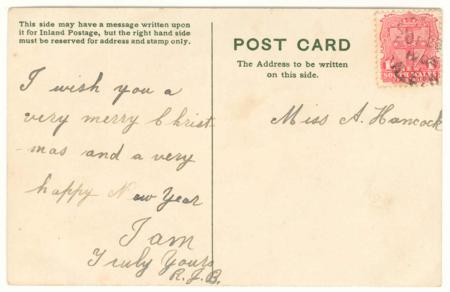 This side may have a message written upon
it for Inland Postage, but the right hand side
must be reserved for address and stamp only.
I wish you a
very merry Christ
-mas and a very
happy New Year
I am
Truly Yours
R.J.B.
POST CARD
The Address to be written
on this side.
Miss A. Hancock